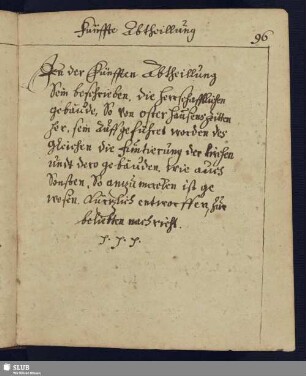 Fünffte Abtheillung
96
In der Fünfften Abtheillung
Sein beschrieben, die Herrschafftlichen
gebäude, So von Osterhausens Zeitten
her, sein auffgeführet worden des
gleichen die Funtierung der Kirchen
undt dero gebäuden, wie auch
Sonsten, So anzumercken ist ge
wesen. Kürtzlich entworffen, zur
beliebten nachricht.
SLUB